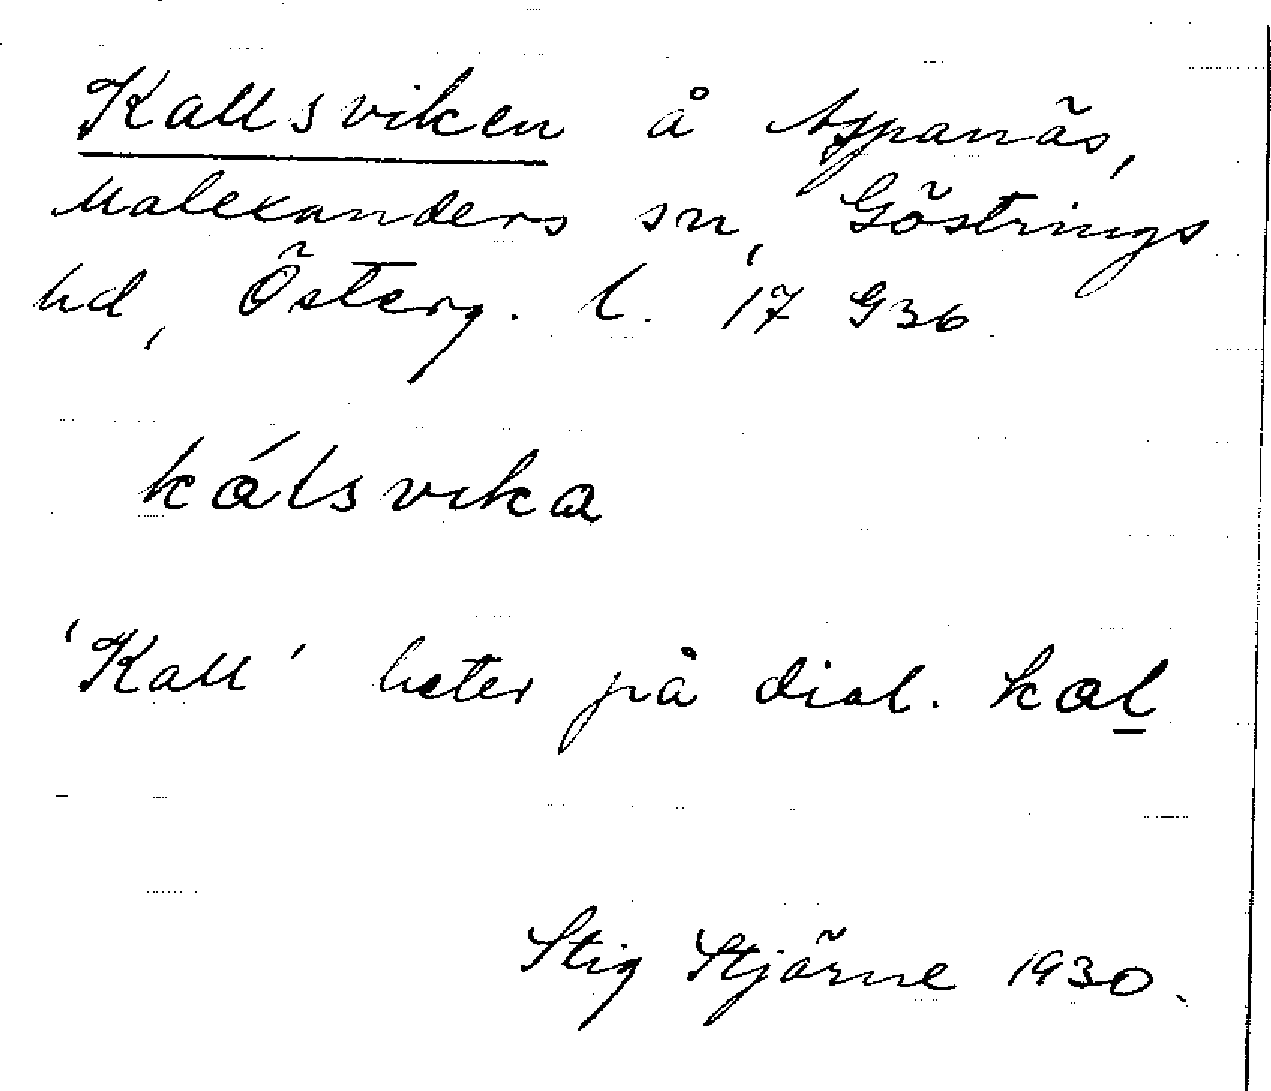 Kallsviken å Aspanäs,
Malexanders sn, Göstrings
hd, Österg. l. 17 G36.
kálsvika
'Kall' heter på dial. kal
Stig Stjärne 1930.